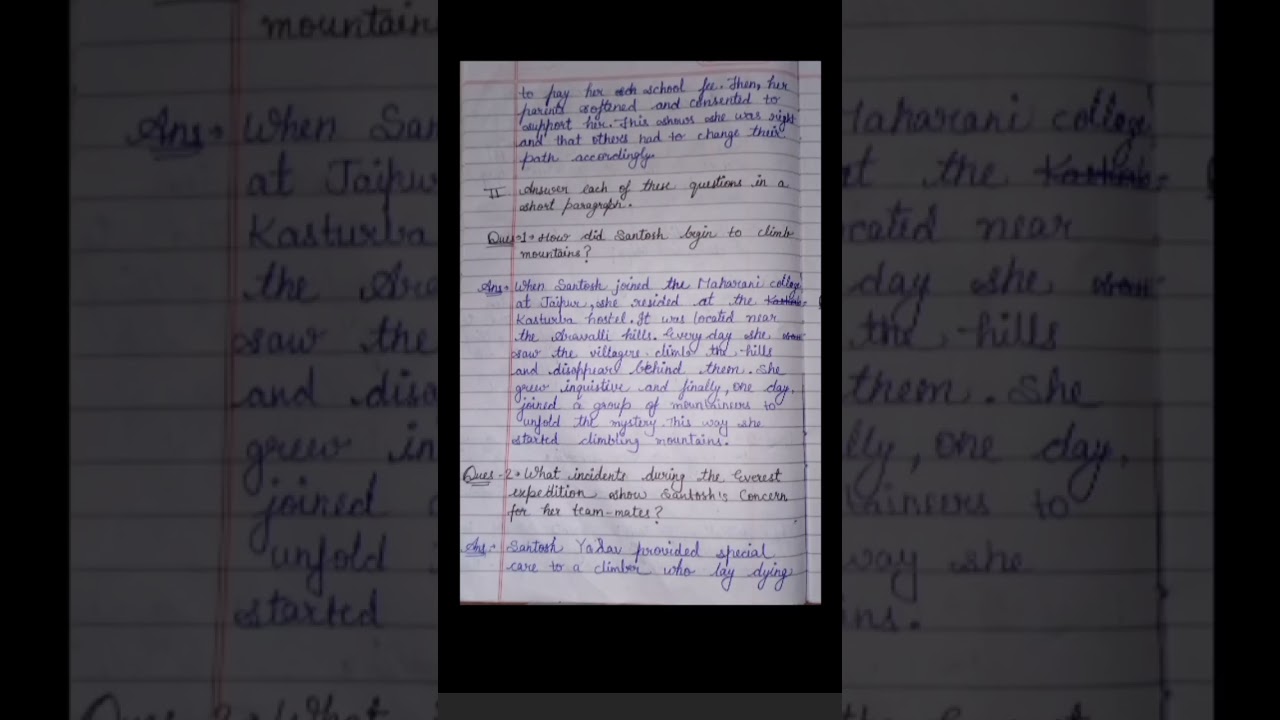 to pay her school fee. Then, her
parents softened and consented to
support her. This shows she was right
and that others had to change their
path accordingly.
II Answer each of these questions in a
short paragraph.
Ques-1→ How did Santosh begin to climb
mountains?
Ans→ When Santosh joined the Maharani college
at Jaipur, she resided at the
Kasturba hostel. It was located near
the Aravalli hills. Every day she
saw the villagers climb the hills
and disappear behind them. She
grew inquistive and finally, one day,
joined a group of mountaineers to
unfold the mystery. This way she
started climbling mountains.
Ques-2→ What incidents during the Everest
expedition show Santosh's Concern
for her team-mates?
Ans→ Santosh Yadav provided special
care to a climber who lay dying